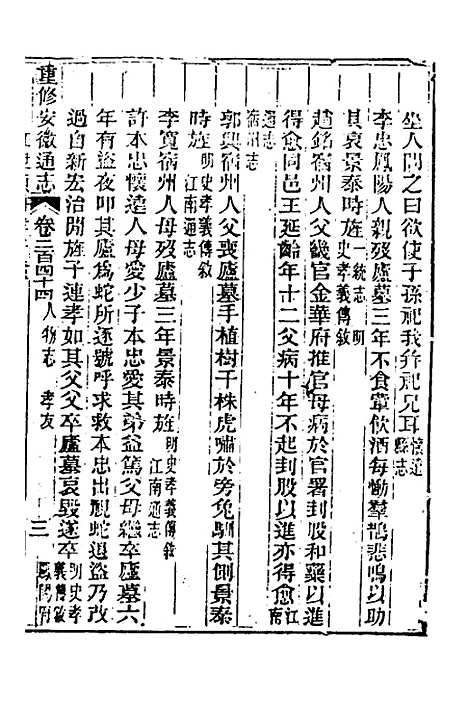 坐人問之曰欲使子孫祀我并祀兄耳懷遠縣志
李忠鳳陽人親歿廬墓三年不食葷飲酒每慟羣鵲悲鳴以助
其哀景泰時旌一統志 明史孝義傳敘
趙銘宿州人父畿官金華府推官母病於官署刲股和藥以進
得愈同邑王延齡年十二父病十年不起刲股以進亦得愈江南
通志
宿州志
郭興宿州人父喪廬墓手植樹千株虎嘯於旁兔馴其側景泰
時旌明史孝義傳敘江南通志
李寬宿州人母歿廬墓三年景泰時旌明史孝義傳敘江南通志
許本忠懷遠人母愛少子本忠愛其弟益篤父母繼卒廬墓六
年有盜夜叩其廬爲蛇所逐號呼求救本忠出覘蛇退盜乃改
過自新宏治間旌子連孝如其父父卒廬墓哀毀遂卒明史孝義傳敘鳳陽府
重修安徽通志 卷二百四十四 人物志 孝友 三